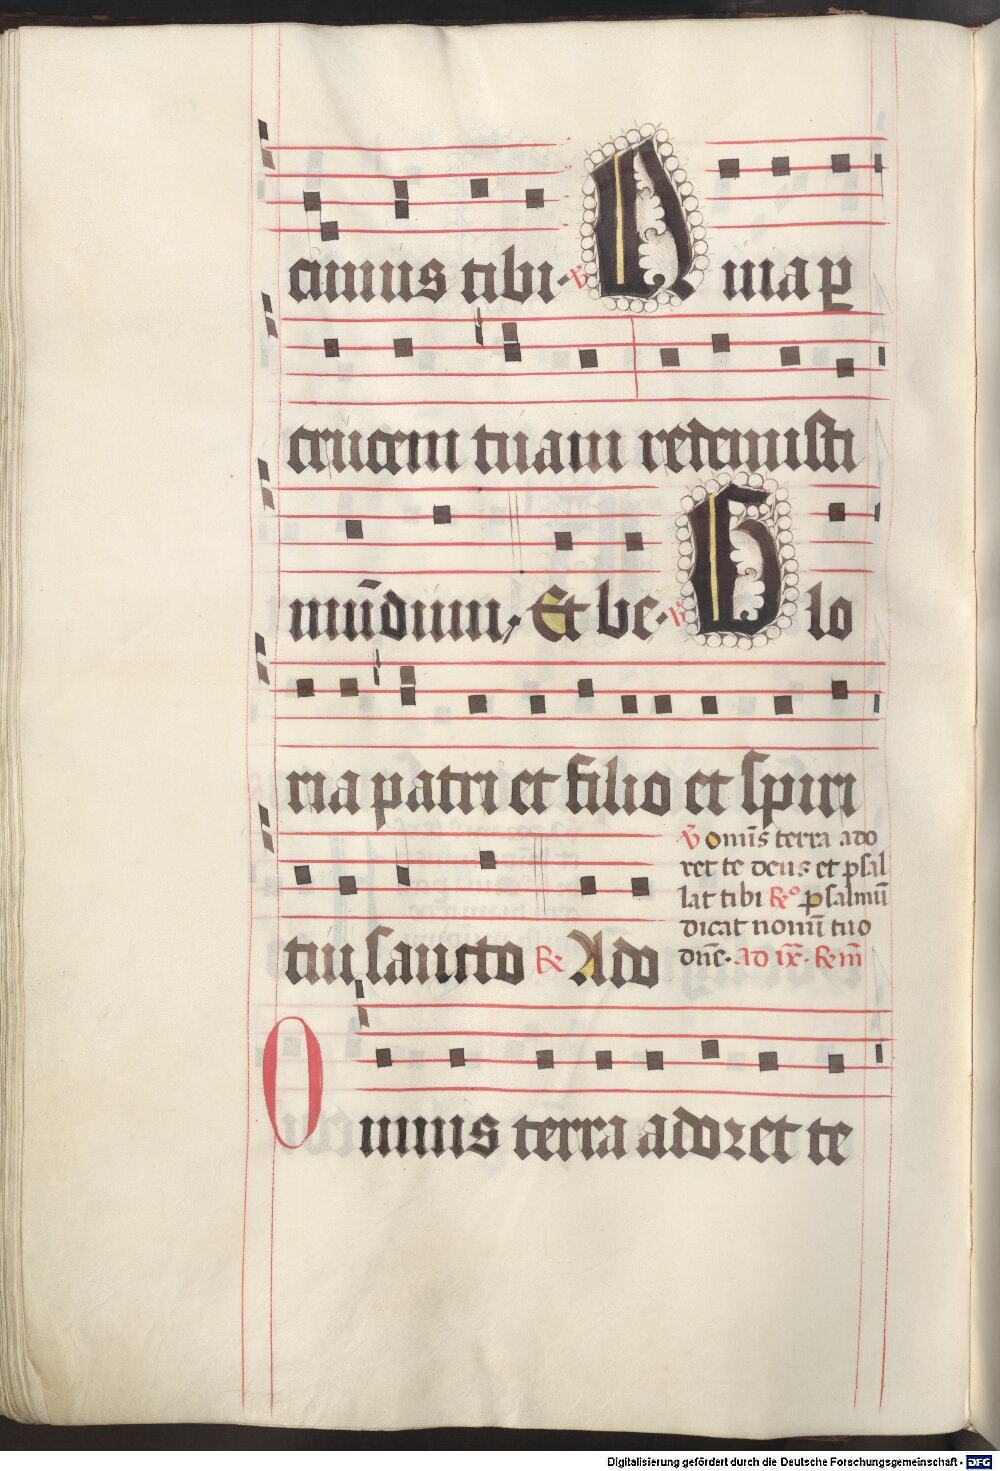 cimus tibi · ℣ Quia ꝑ
crucem tuam redemisti
mūdum, Et be · ℟ Glo
ria patri et filio et spiri
tui sancto ℟ Ado
℣ omīs terra ado
ret te deus et psal
lat tibi ℟º psalmū
dicat nomī tuo
dn̄e · ad ix · ℟m̄
Omnis terra adoret te
Digitalisierung gefördert durch die Deutsche Forschungsgemeinschaft - DFG